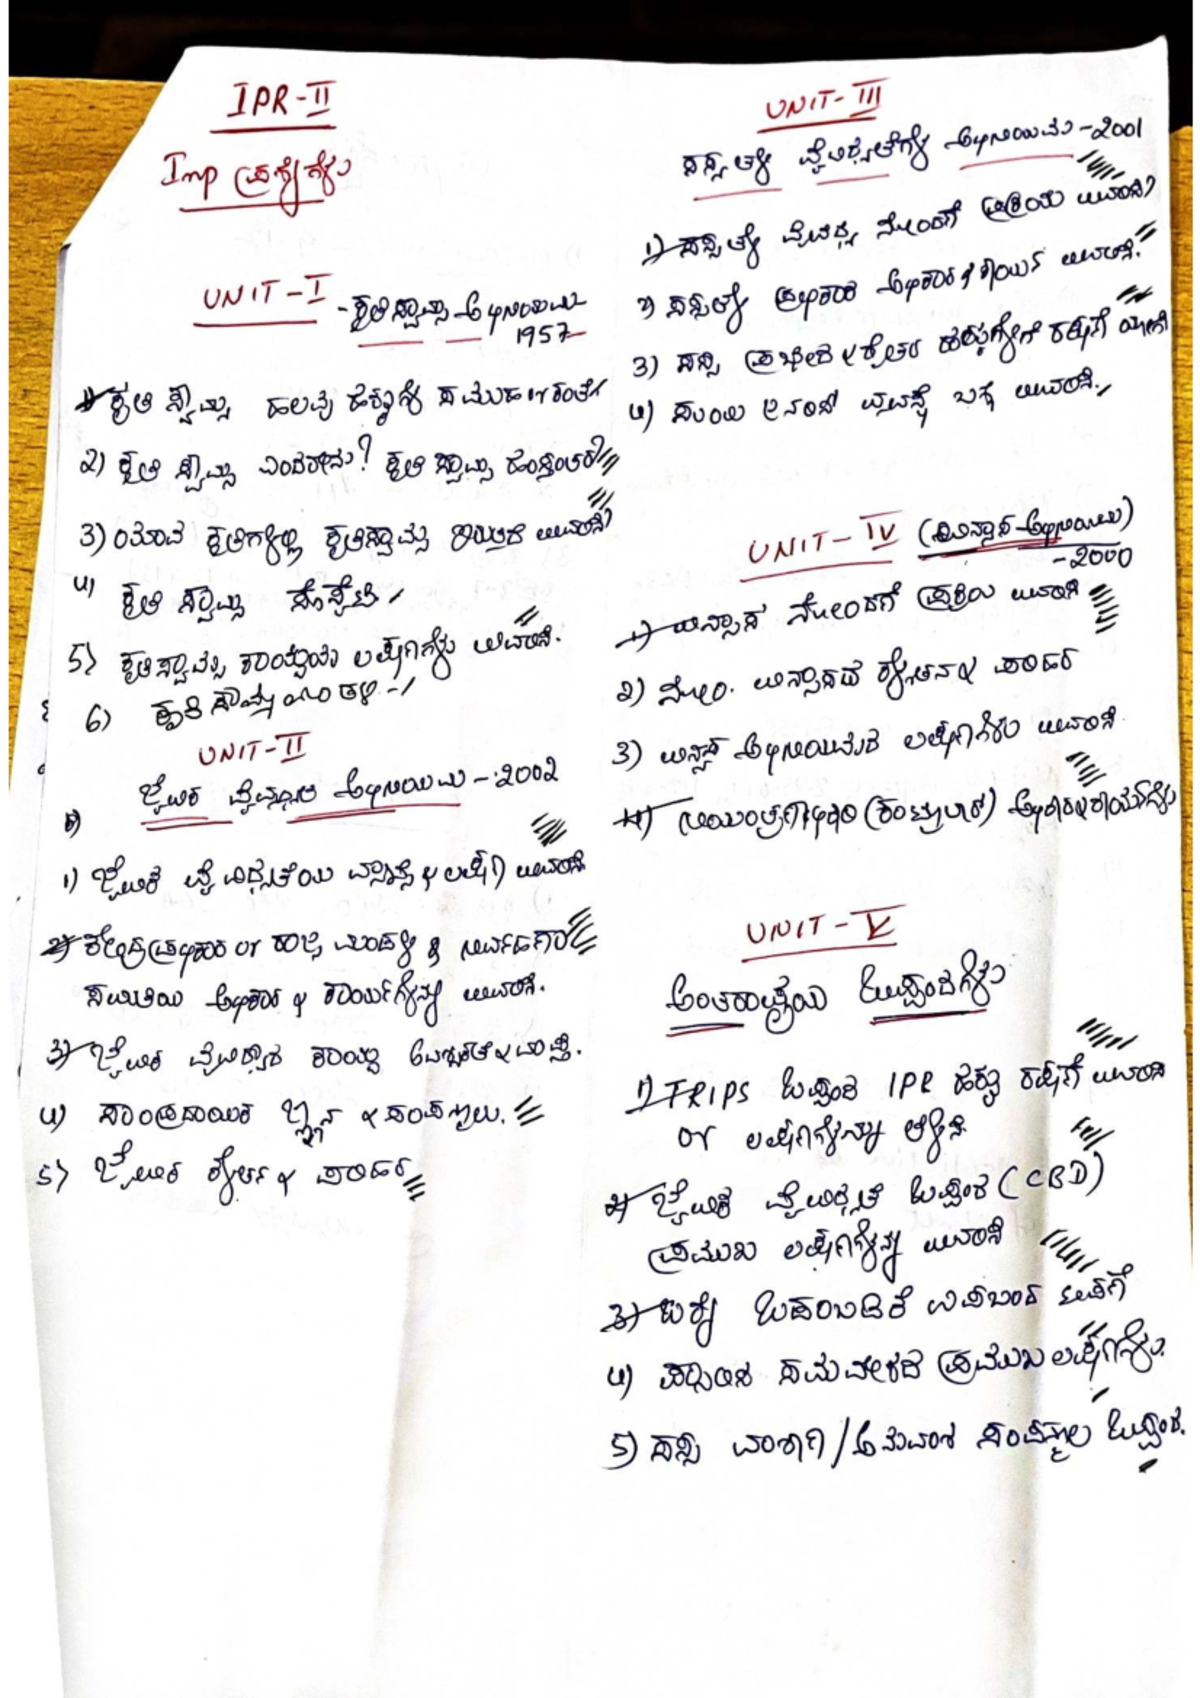 IPR-II
Imp ಪ್ರಶ್ನೆಗಳು
UNIT-I - ಕೃತಿಸ್ವಾಮ್ಯ ಅಧಿನಿಯಮ
1957
1) ಕೃತಿ ಸ್ವಾಮ್ಯ ಹಲವು ಹಕ್ಕುಗಳ ಸಮೂಹ or ಕಂತೆ
2) ಕೃತಿ ಸ್ವಾಮ್ಯ ಎಂದರೇನು? ಕೃತಿ ಸ್ವಾಮ್ಯ ಹಸ್ತಾಂತರ
3) ಯಾವ ಕೃತಿಗಳಲ್ಲಿ ಕೃತಿಸ್ವಾಮ್ಯ ಇರುತ್ತದೆ ವಿವರಿಸಿ
4) ಕೃತಿ ಸ್ವಾಮ್ಯ ಸೊಸೈಟಿ
5) ಕೃತಿಸ್ವಾಮ್ಯ ಕಾಯ್ದೆಯ ಲಕ್ಷಣಗಳು ವಿವರಿಸಿ.
6) ಕೃತಿ ಸ್ವಾಮ್ಯ ಮಂಡಳಿ -
UNIT-II
ಜೈವಿಕ ವೈವಿಧ್ಯತೆ ಅಧಿನಿಯಮ - 2002
1) ಜೈವಿಕ ವೈವಿಧ್ಯತೆಯ ವ್ಯಾಖ್ಯೆ & ಲಕ್ಷಣ ವಿವರಿಸಿ
2) ಕೇಂದ್ರ ಪ್ರಾಧಿಕಾರ or ರಾಜ್ಯ ಮಂಡಳಿ & ನಿರ್ವಹಣಾ
ಸಮಿತಿಯ ಅಧಿಕಾರ & ಕಾರ್ಯಗಳನ್ನು ವಿವರಿಸಿ.
3) ಜೈವಿಕ ವೈವಿಧ್ಯತೆ ಕಾಯ್ದೆ ಅವಶ್ಯಕತೆ & ವ್ಯಾಪ್ತಿ.
4) ಸಾಂಪ್ರದಾಯಿಕ ಜ್ಞಾನ & ಸಂಪನ್ಮೂಲ.
5) ಜೈವಿಕ ಚೌರ್ಯ & ಪರಿಹಾರ
UNIT-III
ಸಸ್ಯ ತಳಿ ವೈವಿಧ್ಯತೆಗಳ ಅಧಿನಿಯಮ - 2001
1) ಸಸ್ಯ ತಳಿ ವೈವಿಧ್ಯ ನೋಂದಣಿ ಪ್ರಕ್ರಿಯೆ ವಿವರಿಸಿ
2) ಸಸ್ಯ ತಳಿ ಪ್ರಾಧಿಕಾರ ಅಧಿಕಾರ & ಕಾರ್ಯ ವಿವರಿಸಿ.
3) ಸಸ್ಯ ಪ್ರಭೇದ & ರೈತರ ಹಕ್ಕುಗಳಿಗೆ ರಕ್ಷಣೆ
4) ವ್ಯವಸ್ಥೆ ಬಗ್ಗೆ ವಿವರಿಸಿ.
UNIT-IV (ವಿನ್ಯಾಸ ಅಧಿನಿಯಮ)
- 2000
1) ವಿನ್ಯಾಸ ನೋಂದಣಿ ಪ್ರಕ್ರಿಯೆ ವಿವರಿಸಿ
2) ನೋಂ. ವಿನ್ಯಾಸದ ಕೃತಿಚೌರ್ಯ & ಪರಿಹಾರ
3) ವಿನ್ಯಾಸ ಅಧಿನಿಯಮದ ಲಕ್ಷಣಗಳು ವಿವರಿಸಿ
4) ನಿಯಂತ್ರಣಾಧಿಕಾರಿ (ಕಂಟ್ರೋಲರ್) ಅಧಿಕಾರ & ಕಾರ್ಯಗಳು
UNIT-V
ಅಂತರಾಷ್ಟ್ರೀಯ ಒಪ್ಪಂದಗಳು
1) TRIPS ಒಪ್ಪಂದ IPR ಹಕ್ಕು ರಕ್ಷಣೆ ವಿವರಿಸಿ
or ಲಕ್ಷಣಗಳನ್ನು ತಿಳಿಸಿ
2) ಜೈವಿಕ ವೈವಿಧ್ಯತೆ ಒಪ್ಪಂದ (CBD)
ಪ್ರಮುಖ ಲಕ್ಷಣಗಳನ್ನು ವಿವರಿಸಿ
3) ಬರ್ನೆ ಒಡಂಬಡಿಕೆ
4) ಪ್ಯಾರಿಸ್ ಸಮಾವೇಶದ ಪ್ರಮುಖ ಲಕ್ಷಣಗಳು.
5) ಸಸ್ಯ ವಂಶವಾಹಿ / ಅನುವಂಶಿಕ ಸಂಪನ್ಮೂಲ ಒಪ್ಪಂದ.